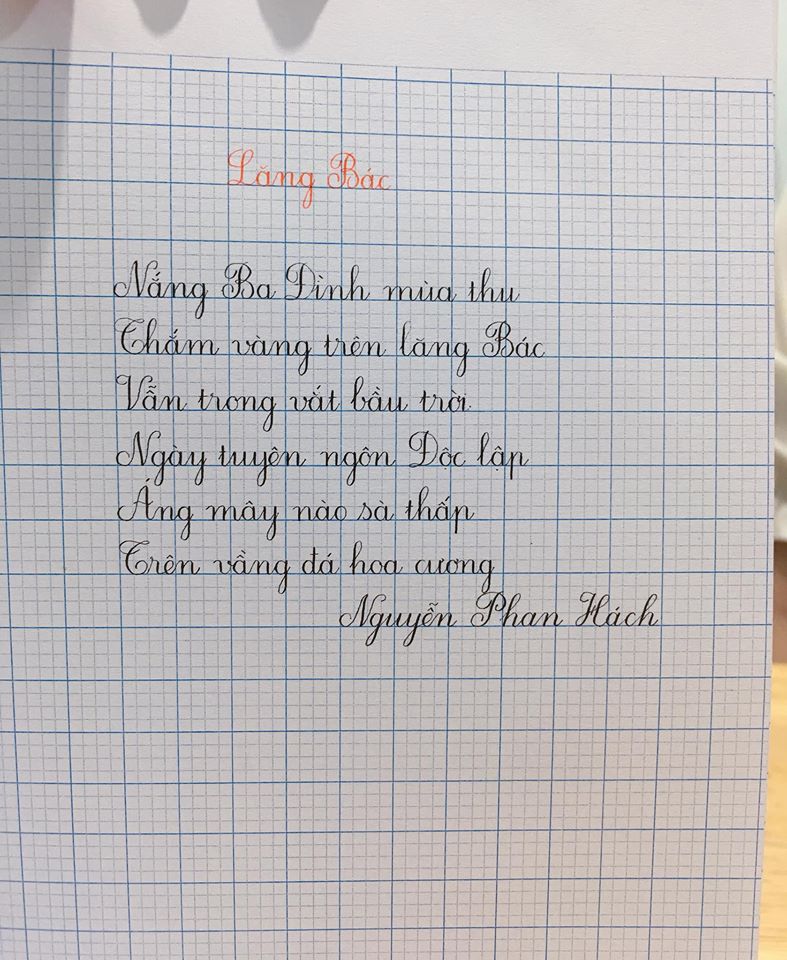 Lăng Bác
Nắng Ba Đình mùa thu
Thắm vàng trên lăng Bác
Vẫn trong vắt bầu trời
Ngày tuyên ngôn Độc lập
Áng mây nào sà thấp
Trên vầng đá hoa cương
Nguyễn Phan Hách